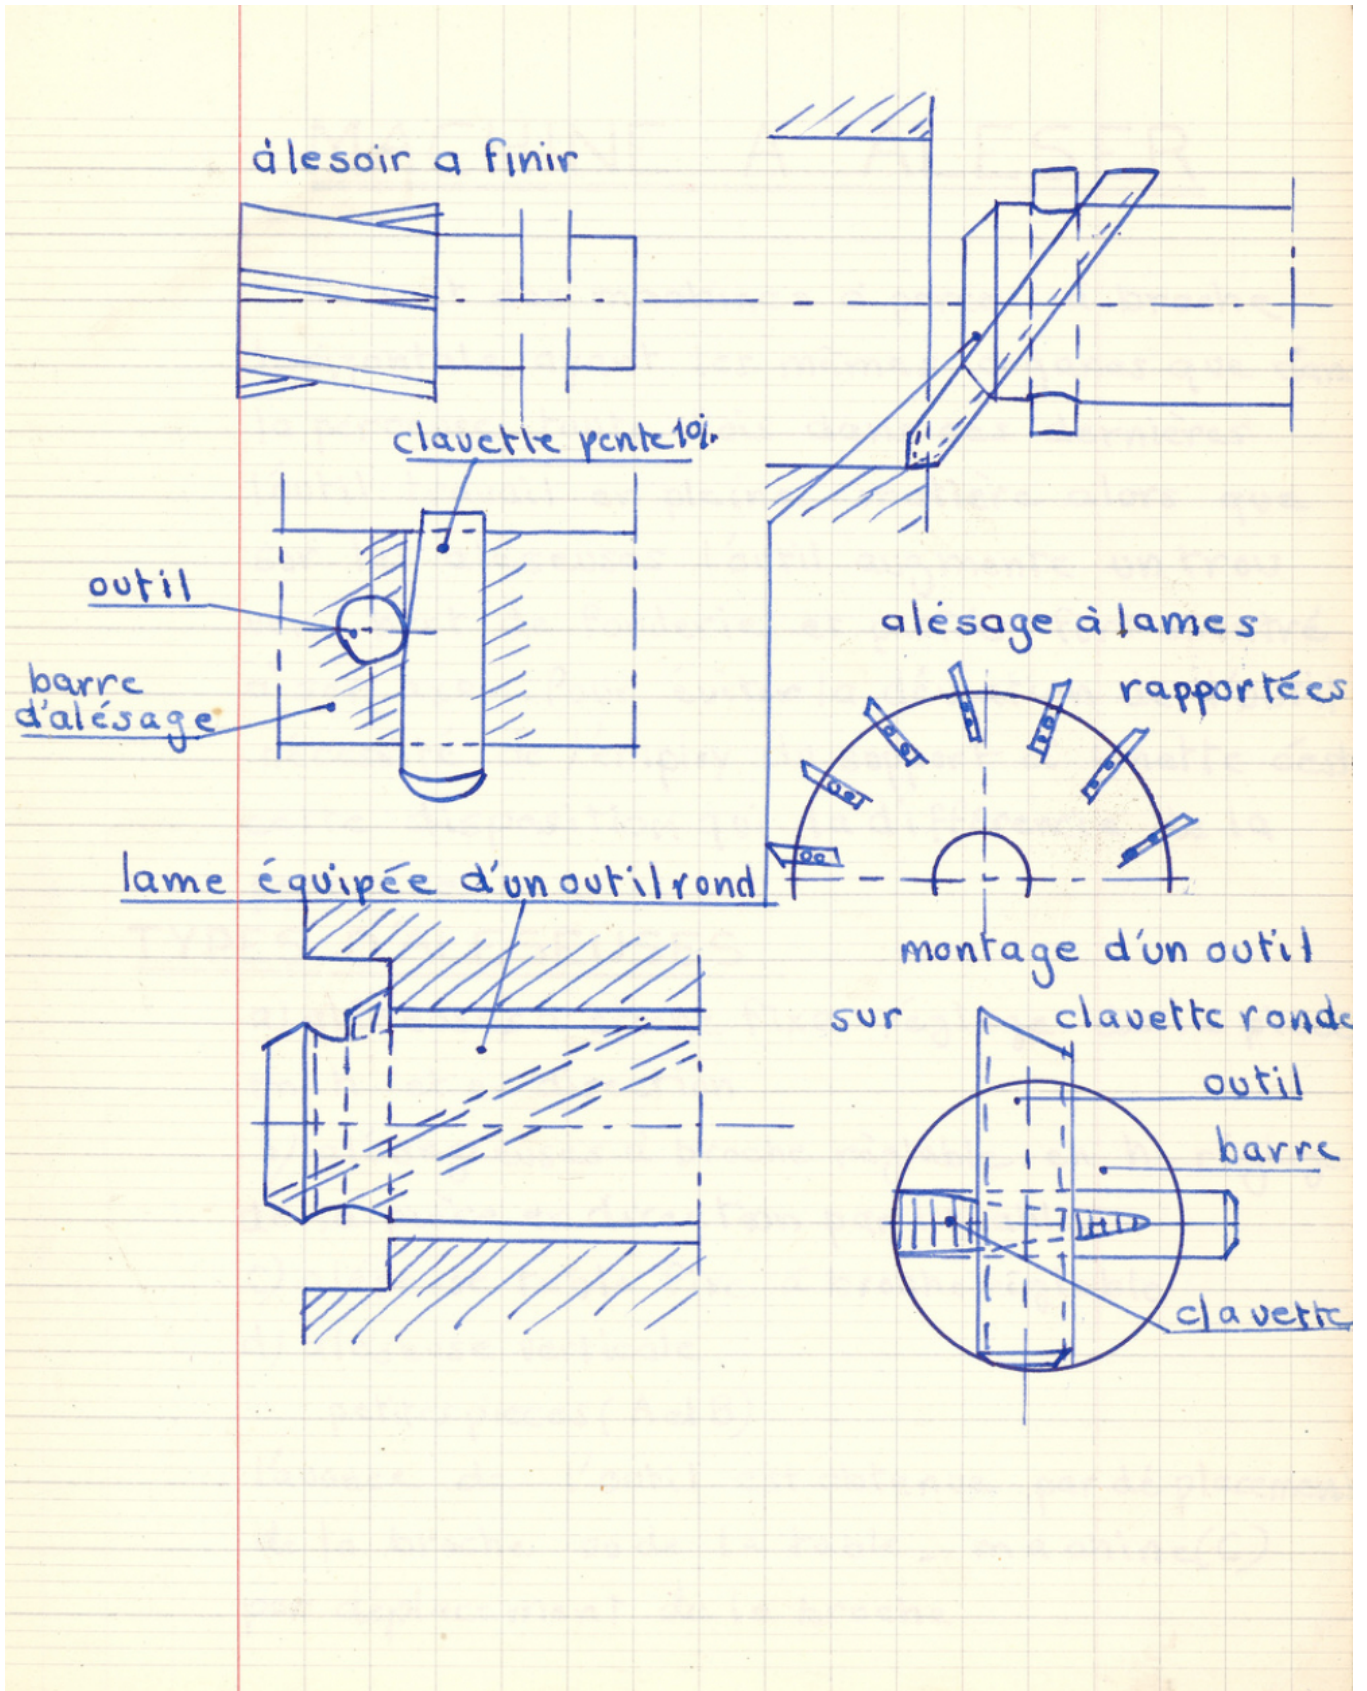 álesoir a finir
clavette pente 10%
outil
barre
d'alésage
alésage à lames
rapportées
lame équipée d'un outil rond
montage d'un outil
sur clavette ronde
outil
barre
clavette